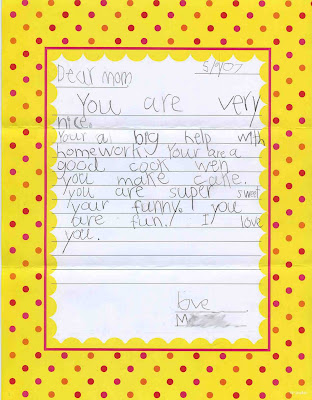 Dear mom
You are very
nice.
Your a big help with
homework. Your are a
good cook wen
you make cake.
you are super sweet
your funny. you
are fun. I love
you.
love
M